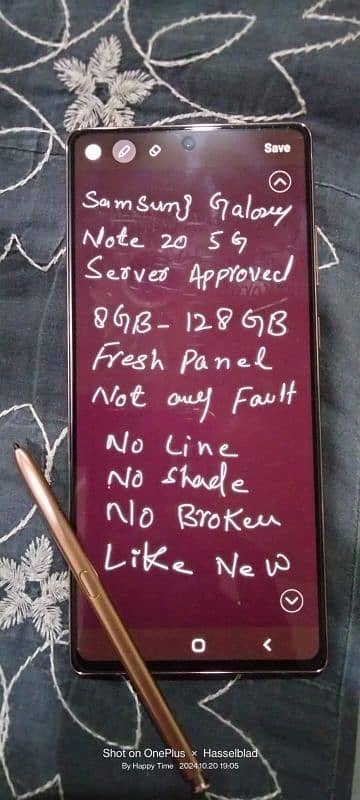 Save
Samsung Galaxy
Note 20 5G
Server Approved
8GB - 128GB
Fresh Panel
Not any Fault
No Line
No Shade
No Broken
Like New
Shot on OnePlus × Hasselblad
By Happy Time 2024.10.20 19:05